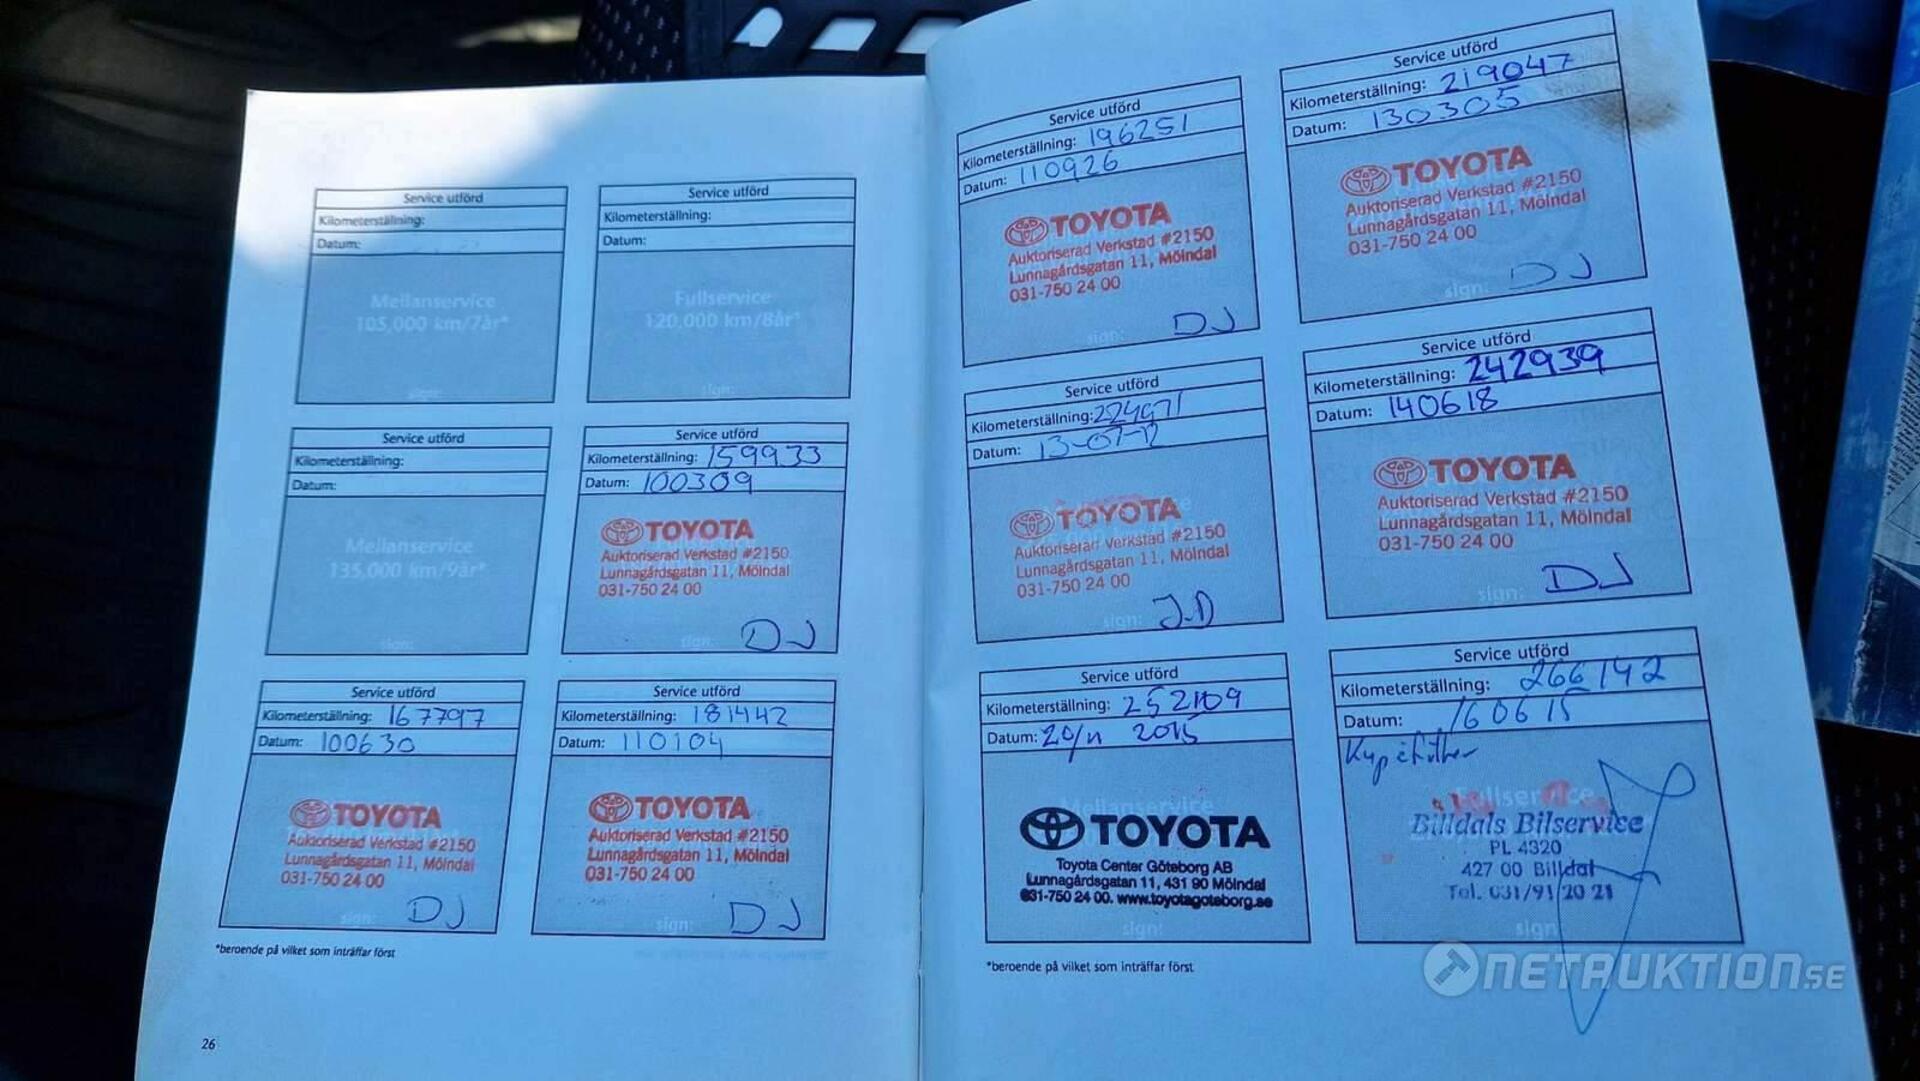 Service utförd
Kilometerställning:
Datum:
Mellanservice
105,000 km/7år*
sign:
Service utförd
Kilometerställning:
Datum:
Fullservice
120,000 km/8år*
sign:
Service utförd
Kilometerställning:
Datum:
Mellanservice
135,000 km/9år*
sign:
Service utförd
Kilometerställning: 159933
Datum: 100309
TOYOTA
Auktoriserad Verkstad #2150
Lunnagårdsgatan 11, Mölndal
031-750 24 00
sign: DJ
Service utförd
Kilometerställning: 167797
Datum: 100630
TOYOTA
Auktoriserad Verkstad #2150
Lunnagårdsgatan 11, Mölndal
031-750 24 00
sign: DJ
Service utförd
Kilometerställning: 181442
Datum: 110104
TOYOTA
Auktoriserad Verkstad #2150
Lunnagårdsgatan 11, Mölndal
031-750 24 00
sign: DJ
*beroende på vilket som inträffar först
26
Service utförd
Kilometerställning: 196251
Datum: 110926
TOYOTA
Auktoriserad Verkstad #2150
Lunnagårdsgatan 11, Mölndal
031-750 24 00
sign: DJ
Service utförd
Kilometerställning: 219047
Datum: 130305
TOYOTA
Auktoriserad Verkstad #2150
Lunnagårdsgatan 11, Mölndal
031-750 24 00
sign: DJ
Service utförd
Kilometerställning: 224971
Datum: 13-07-12
TOYOTA
Auktoriserad Verkstad #2150
Lunnagårdsgatan 11, Mölndal
031-750 24 00
sign: J.D
Service utförd
Kilometerställning: 242939
Datum: 140618
TOYOTA
Auktoriserad Verkstad #2150
Lunnagårdsgatan 11, Mölndal
031-750 24 00
sign: DJ
Service utförd
Kilometerställning: 252109
Datum: 20/11 2015
Mellanservice
TOYOTA
Toyota Center Göteborg AB
Lunnagårdsgatan 11, 431 90 Mölndal
031-750 24 00. www.toyotagoteborg.se
sign:
Service utförd
Kilometerställning: 266142
Datum: 160615
Fullservice
Billdals Bilservice
PL 4320
427 00 Billdal
Tel. 031/91 20 21
sign:
*beroende på vilket som inträffar först
NETAUKTION.SE